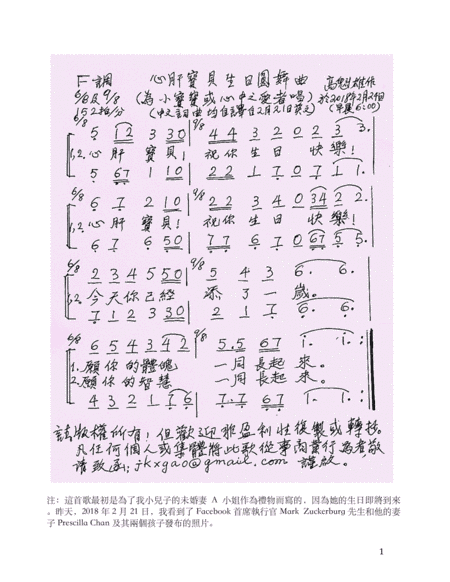 F調 心肝寶貝生日圓舞曲 高想生雄作
6/8及9/8 (為小寶寶或心中之愛者唱) 於2018年2月22日
152拍/分 (中文詞曲均自譯自2月21日英文) (早晨6:00)
6/8 5 12 3 30 | 9/8 44 32020 23 3.
1,2.心 肝 寶 貝! 祝你 生 日 快 樂!
5 67 1 10 | 22 1707 1 1.
6/8 6 7 2 10 | 9/8 22 340 342 2
1,2.心 肝 寶 貝! 祝你 生 日 快 樂!
6 7 6 50 | 77 670 67 5 5.
6/8 2 3 4 5 50 | 9/8 5 4 3 6. 6.
1,2. 今 天 你 已經 添 了 一 歲。
7 1 2 3 30 | 2 1 7 6. 6.
6/8 6 5 4 3 4 2 | 9/8 5.5 67 1. 1.
1.願 你 的 體魄 一周 長起 來。
2.願 你 的 智慧 一周 長起 來。
4 3 2 1 7 6 | 7.7 67 1. 1.
該版權所有!但歡迎非盈利性複製或轉抄。
凡任何個人或集體將此歌從事商業行為者敬
請致函: jkxgao@gmail.com 謹啟。
注: 這首歌最初是為了我小兒子的未婚妻 A 小姐作為禮物而寫的，因為她的生日即將到來
。昨天，2018 年 2 月 21 日，我看到了 Facebook 首席執行官 Mark Zuckerburg 先生和他的妻
子 Prescilla Chan 及其兩個孩子發布的照片。
1